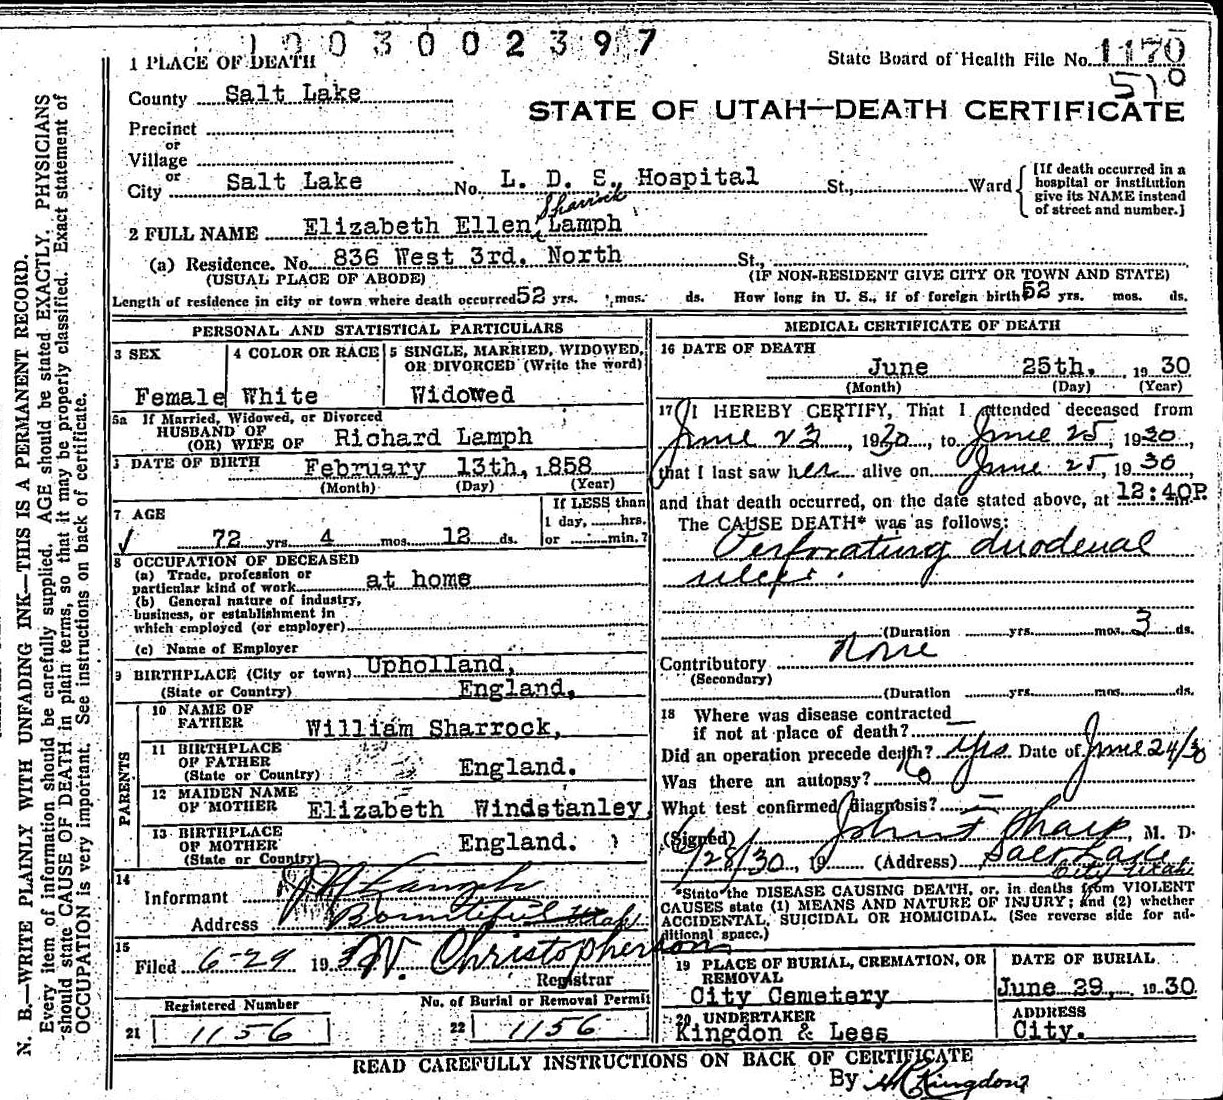 1003002397
State Board of Health File No. 1170
510
STATE OF UTAH—DEATH CERTIFICATE
1 PLACE OF DEATH
County Salt Lake
Precinct
or
Village
or
City Salt Lake No. L. D. S. Hospital St., Ward
[If death occurred in a hospital or institution give its NAME instead of street and number.]
Sharrock
2 FULL NAME Elizabeth Ellen Lamph
(a) Residence. No. 836 West 3rd. North St.,
(USUAL PLACE OF ABODE) (IF NON-RESIDENT GIVE CITY OR TOWN AND STATE)
Length of residence in city or town where death occurred 52 yrs. mos. ds. How long in U. S., if of foreign birth? 52 yrs. mos. ds.
PERSONAL AND STATISTICAL PARTICULARS
3 SEX 4 COLOR OR RACE 5 SINGLE, MARRIED, WIDOWED,
OR DIVORCED (Write the word)
Female White Widowed
5a If Married, Widowed, or Divorced
HUSBAND OF
(OR) WIFE OF Richard Lamph
DATE OF BIRTH February 13th, 1858
(Month) (Day) (Year)
7 AGE If LESS than
1 day, hrs.
72 yrs. 4 mos. 12 ds. or min.?
8 OCCUPATION OF DECEASED
(a) Trade, profession or
particular kind of work at home
(b) General nature of industry,
business, or establishment in
which employed (or employer)
(c) Name of Employer
9 BIRTHPLACE (City or town) Upholland,
(State or Country) England,
PARENTS
10 NAME OF
FATHER William Sharrock,
11 BIRTHPLACE
OF FATHER
(State or Country) England.
12 MAIDEN NAME
OF MOTHER Elizabeth Windstanley
13 BIRTHPLACE
OF MOTHER England.
(State or Country)
14
Informant J Lamph
Address Bountiful Utah
15
Filed 6-29 193 W. Christopherson
Registrar
Registered Number No. of Burial or Removal Permit
21 1156 22 1156
MEDICAL CERTIFICATE OF DEATH
16 DATE OF DEATH
June 25th. 1930
(Month) (Day) (Year)
17 I HEREBY CERTIFY, That I attended deceased from
June 23, 1930, to June 25, 1930,
that I last saw her alive on June 25, 1930,
and that death occurred, on the date stated above, at 12:40P.m.
The CAUSE DEATH* was as follows:
Perforating duodenal
ulcer.
(Duration yrs. mos. 3 ds.
Contributory None
(Secondary)
(Duration yrs. mos. ds.
18 Where was disease contracted
if not at place of death?
Did an operation precede death? Yes. Date of June 24/30
Was there an autopsy? No
What test confirmed diagnosis? —
(Signed) John F Sharp, M. D.
6/28/30, 19 (Address) Salt Lake
City Utah
*State the DISEASE CAUSING DEATH, or, in deaths from VIOLENT
CAUSES state (1) MEANS AND NATURE OF INJURY; and (2) whether
ACCIDENTAL, SUICIDAL OR HOMICIDAL. (See reverse side for ad-
ditional space.)
19 PLACE OF BURIAL, CREMATION, OR DATE OF BURIAL
REMOVAL
City Cemetery June 29, 1930.
20 UNDERTAKER ADDRESS
Kingdon & Lees City.
READ CAREFULLY INSTRUCTIONS ON BACK OF CERTIFICATE
By Kingdon
N. B.—WRITE PLAINLY WITH UNFADING INK—THIS IS A PERMANENT RECORD.
Every item of information should be carefully supplied. AGE should be stated EXACTLY. PHYSICIANS
should state CAUSE OF DEATH in plain terms, so that it may be properly classified. Exact statement of
OCCUPATION is very important. See instructions on back of certificate.